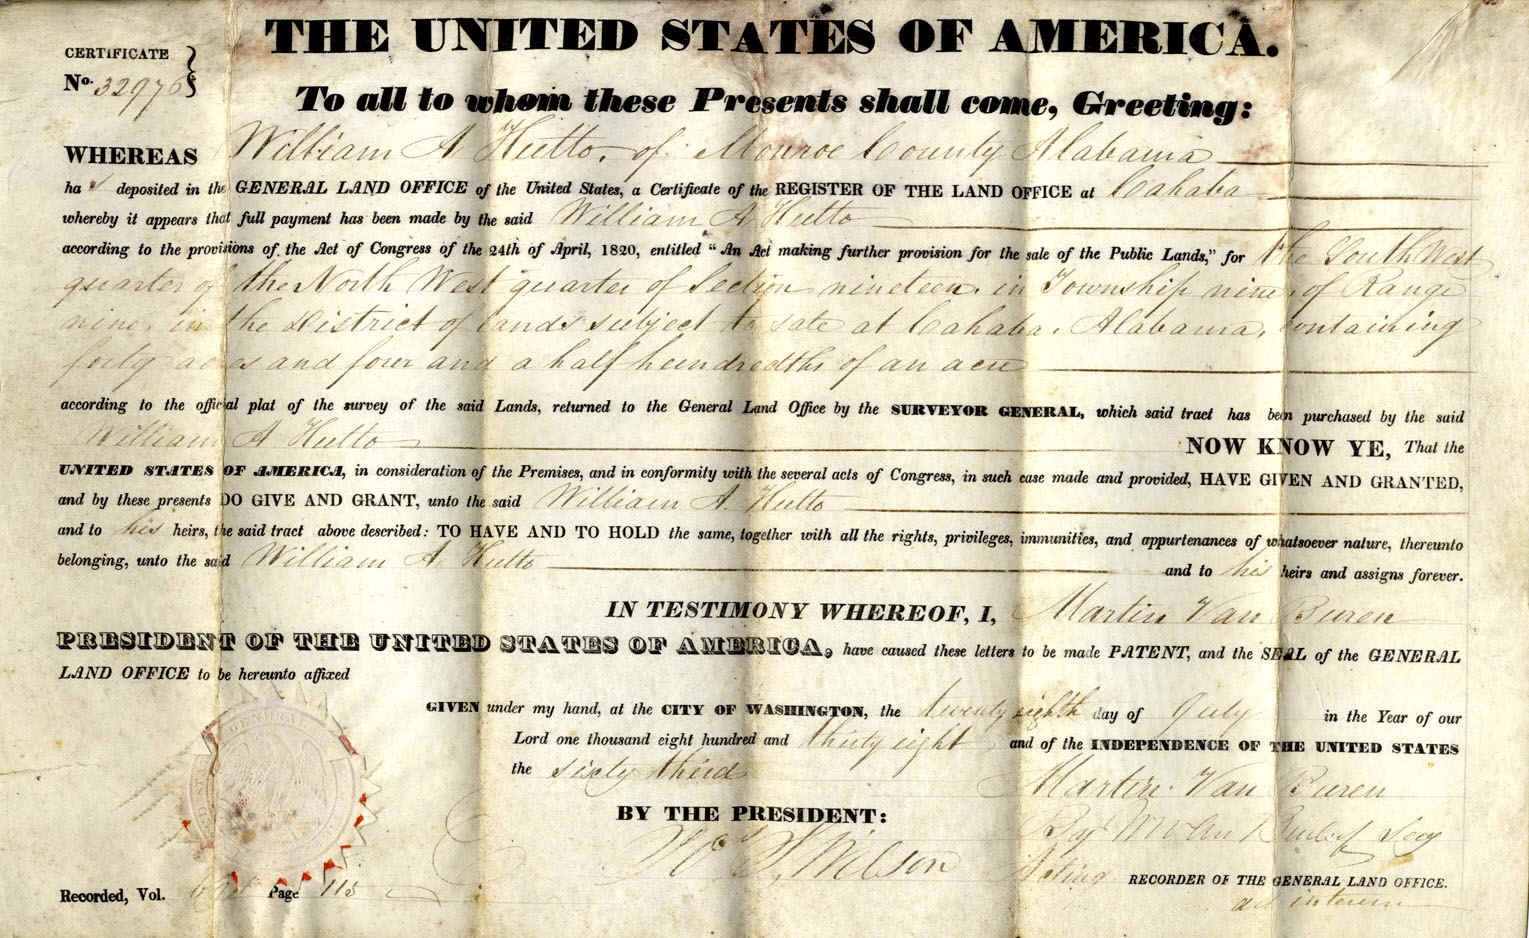 THE UNITED STATES OF AMERICA.
CERTIFICATE
No. 32976
To all to whom these Presents shall come, Greeting:
WHEREAS William A Hutto, of Monroe County Alabama
ha s deposited in the GENERAL LAND OFFICE of the United States, a Certificate of the REGISTER OF THE LAND OFFICE at Cahaba
whereby it appears that full payment has been made by the said William A Hutto
according to the provisions of the Act of Congress of the 24th of April, 1820, entitled "An Act making further provision for the sale of the Public Lands," for the South West
quarter of the North West quarter of Section nineteen, in Township nine, of Range
nine, in the District of lands subject to sale at Cahaba, Alabama, containing
forty acres and four and a half hundredths of an acre
according to the official plat of the survey of the said Lands, returned to the General Land Office by the SURVEYOR GENERAL, which said tract has been purchased by the said
William A Hutto NOW KNOW YE, That the
UNITED STATES OF AMERICA, in consideration of the Premises, and in conformity with the several acts of Congress, in such case made and provided, HAVE GIVEN AND GRANTED,
and by these presents DO GIVE AND GRANT, unto the said William A. Hutto
and to his heirs, the said tract above described: TO HAVE AND TO HOLD the same, together with all the rights, privileges, immunities, and appurtenances of whatsoever nature, thereunto
belonging, unto the said William A Hutto and to his heirs and assigns forever.
IN TESTIMONY WHEREOF, I, Martin Van Buren
PRESIDENT OF THE UNITED STATES OF AMERICA, have caused these letters to be made PATENT, and the SEAL of the GENERAL
LAND OFFICE to be hereunto affixed
GIVEN under my hand, at the CITY OF WASHINGTON, the twenty eighth day of July in the Year of our
Lord one thousand eight hundred and thirty eight and of the INDEPENDENCE OF THE UNITED STATES
the sixty third
Martin Van Buren
BY THE PRESIDENT:
By Van Buren Secy
Wilson Acting RECORDER OF THE GENERAL LAND OFFICE.
ad interim
Recorded, Vol. Page 113
GENERAL